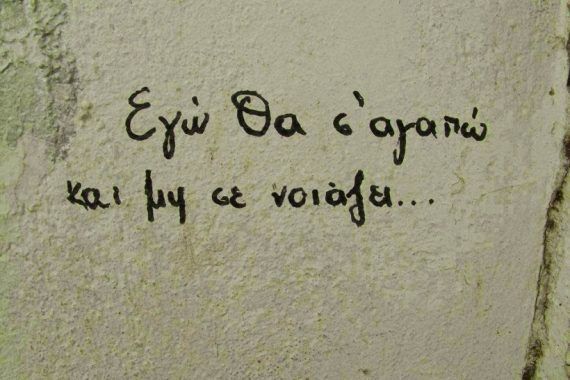 Εγώ θα σ'αγαπώ
και μη σε νοιάζει...